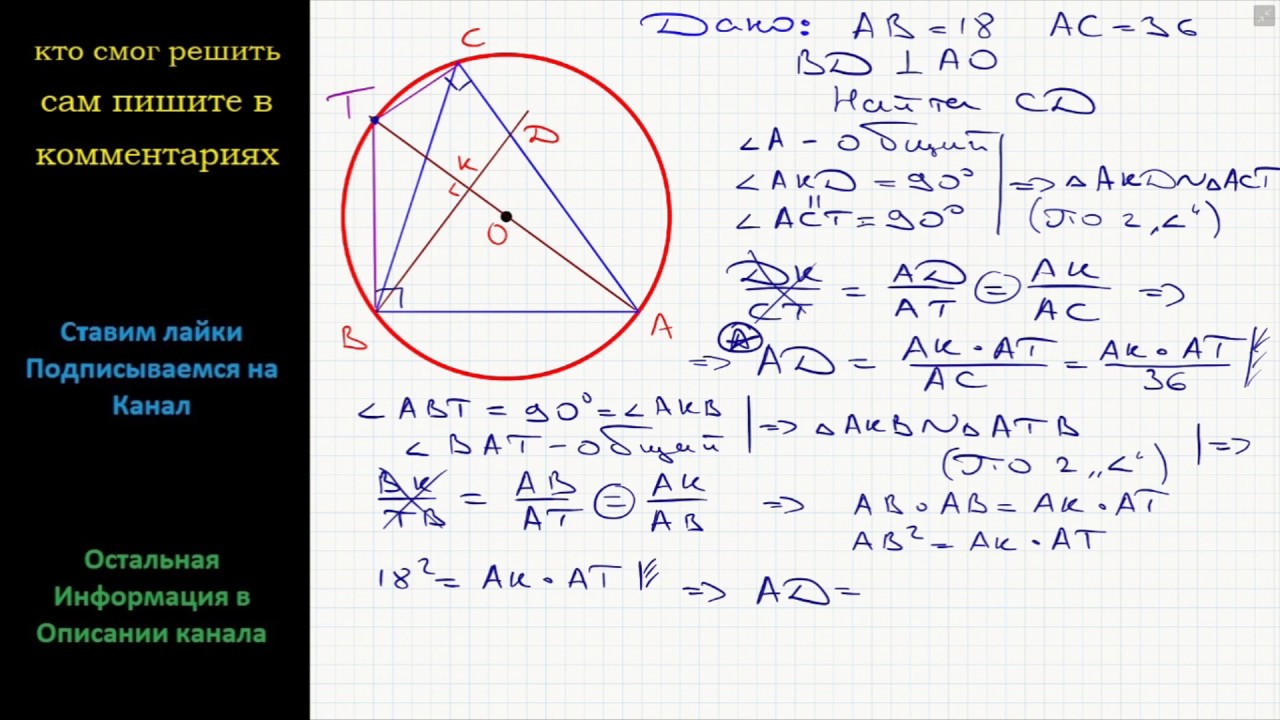 кто смог решить
сам пишите в
комментариях
Ставим лайки
Подписываемся на
Канал
Остальная
Информация в
Описании канала
C
T
D
K
O
B
A
Дано: AB = 18 AC = 36
BD ⊥ AO
Найти CD
∠A - общий
∠AKD = 90° => △AKD ~ △ACT
∠ACT = 90° (по 2 „∠“)
DK/CT = AD/AT = AK/AC =>
=> AD = AK · AT / AC = AK · AT / 36
∠ABT = 90° = ∠AKB
∠BAT - общий => △AKB ~ △ATB =>
(по 2 „∠“)
BK/TB = AB/AT = AK/AB => AB · AB = AK · AT
AB² = AK · AT
18² = AK · AT => AD =